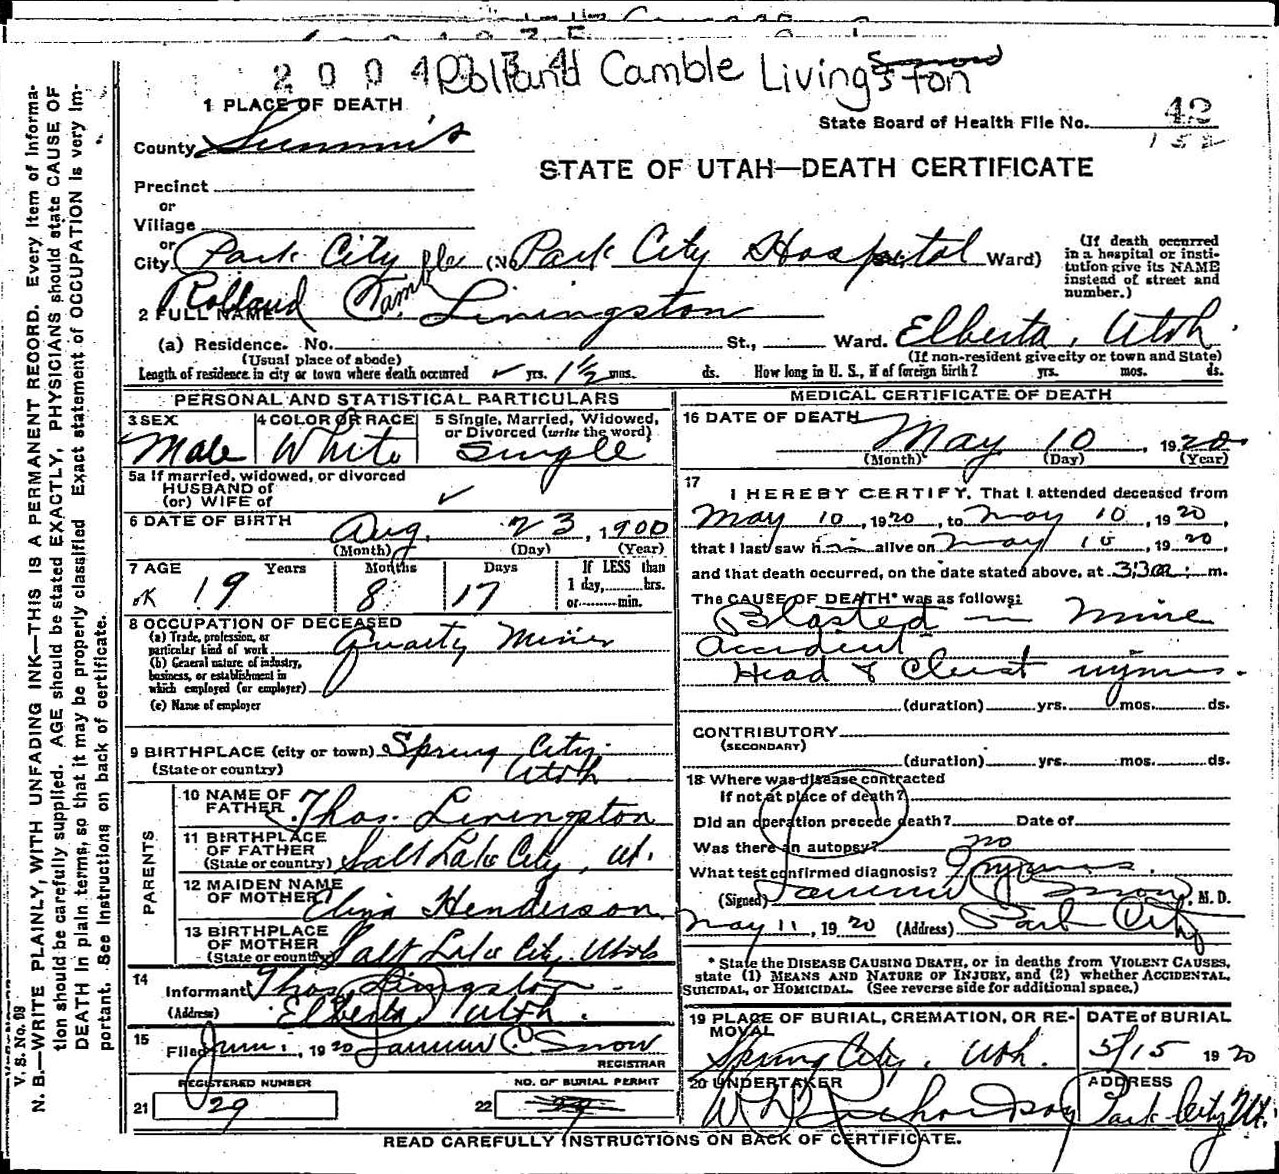 2004034 Rolland Camble Livingston
1 PLACE OF DEATH
State Board of Health File No. 42
152
County Summit
STATE OF UTAH—DEATH CERTIFICATE
Precinct
or
Village
or
City Park City (No Park City Hospital Ward)
(If death occurred in a hospital or institution give its NAME instead of street and number.)
2 FULL NAME Rolland Camble Livingston
(a) Residence. No. St., Ward. Elberta, Utah.
(Usual place of abode)
(If non-resident give city or town and State)
Length of residence in city or town where death occurred ✓ yrs. 1½ mos. ds. How long in U. S., if of foreign birth? yrs. mos. ds.
PERSONAL AND STATISTICAL PARTICULARS
3 SEX Male
4 COLOR OR RACE White
5 Single, Married, Widowed, or Divorced (write the word) Single
5a If married, widowed, or divorced
HUSBAND of
(or) WIFE of ✓
6 DATE OF BIRTH Aug. 23, 1900
(Month) (Day) (Year)
7 AGE Years Months Days If LESS than
1 day,......hrs.
or......min.
OK 19 8 17
8 OCCUPATION OF DECEASED
(a) Trade, profession, or particular kind of work Quartz Miner
(b) General nature of industry, business, or establishment in which employed (or employer)
(c) Name of employer
9 BIRTHPLACE (city or town) Spring City
(State or country) Utah
PARENTS
10 NAME OF FATHER Thos. Livingston
11 BIRTHPLACE OF FATHER
(State or country) Salt Lake City, Ut.
12 MAIDEN NAME OF MOTHER Eliza Henderson
13 BIRTHPLACE OF MOTHER
(State or country) Salt Lake City, Utah
14
Informant Thos Livingston
(Address) Elberta Utah.
15
Filed June 1, 1920 C. Snow
REGISTRAR
REGISTERED NUMBER
21 29
NO. OF BURIAL PERMIT
22
MEDICAL CERTIFICATE OF DEATH
16 DATE OF DEATH May 10, 1920
(Month) (Day) (Year)
17
I HEREBY CERTIFY, That I attended deceased from
May 10, 1920, to May 10, 1920,
that I last saw him alive on May 10, 1920,
and that death occurred, on the date stated above, at 3:30 a. m.
The CAUSE OF DEATH* was as follows:
Blasted in Mine
Accident
Head & Chest injuries.
(duration) yrs. mos. ds.
CONTRIBUTORY
(SECONDARY)
(duration) yrs. mos. ds.
18 Where was disease contracted
If not at place of death?
Did an operation precede death? Date of
Was there an autopsy? no
What test confirmed diagnosis? Injuries.
(Signed) C. Snow, M. D.
May 11, 1920 (Address) Park City
* State the DISEASE CAUSING DEATH, or in deaths from VIOLENT CAUSES, state (1) MEANS AND NATURE OF INJURY, and (2) whether ACCIDENTAL, SUICIDAL, or HOMICIDAL. (See reverse side for additional space.)
19 PLACE OF BURIAL, CREMATION, OR REMOVAL Spring City, Utah.
DATE of BURIAL 5/15 1920
20 UNDERTAKER W H Richardson
ADDRESS Park City Ut.
READ CAREFULLY INSTRUCTIONS ON BACK OF CERTIFICATE.
V. S. No. 98
N. B.—WRITE PLAINLY, WITH UNFADING INK—THIS IS A PERMANENT RECORD. Every item of information should be carefully supplied. AGE should be stated EXACTLY. PHYSICIANS should state CAUSE OF DEATH in plain terms, so that it may be properly classified. Exact statement of OCCUPATION is very important. See instructions on back of certificate.